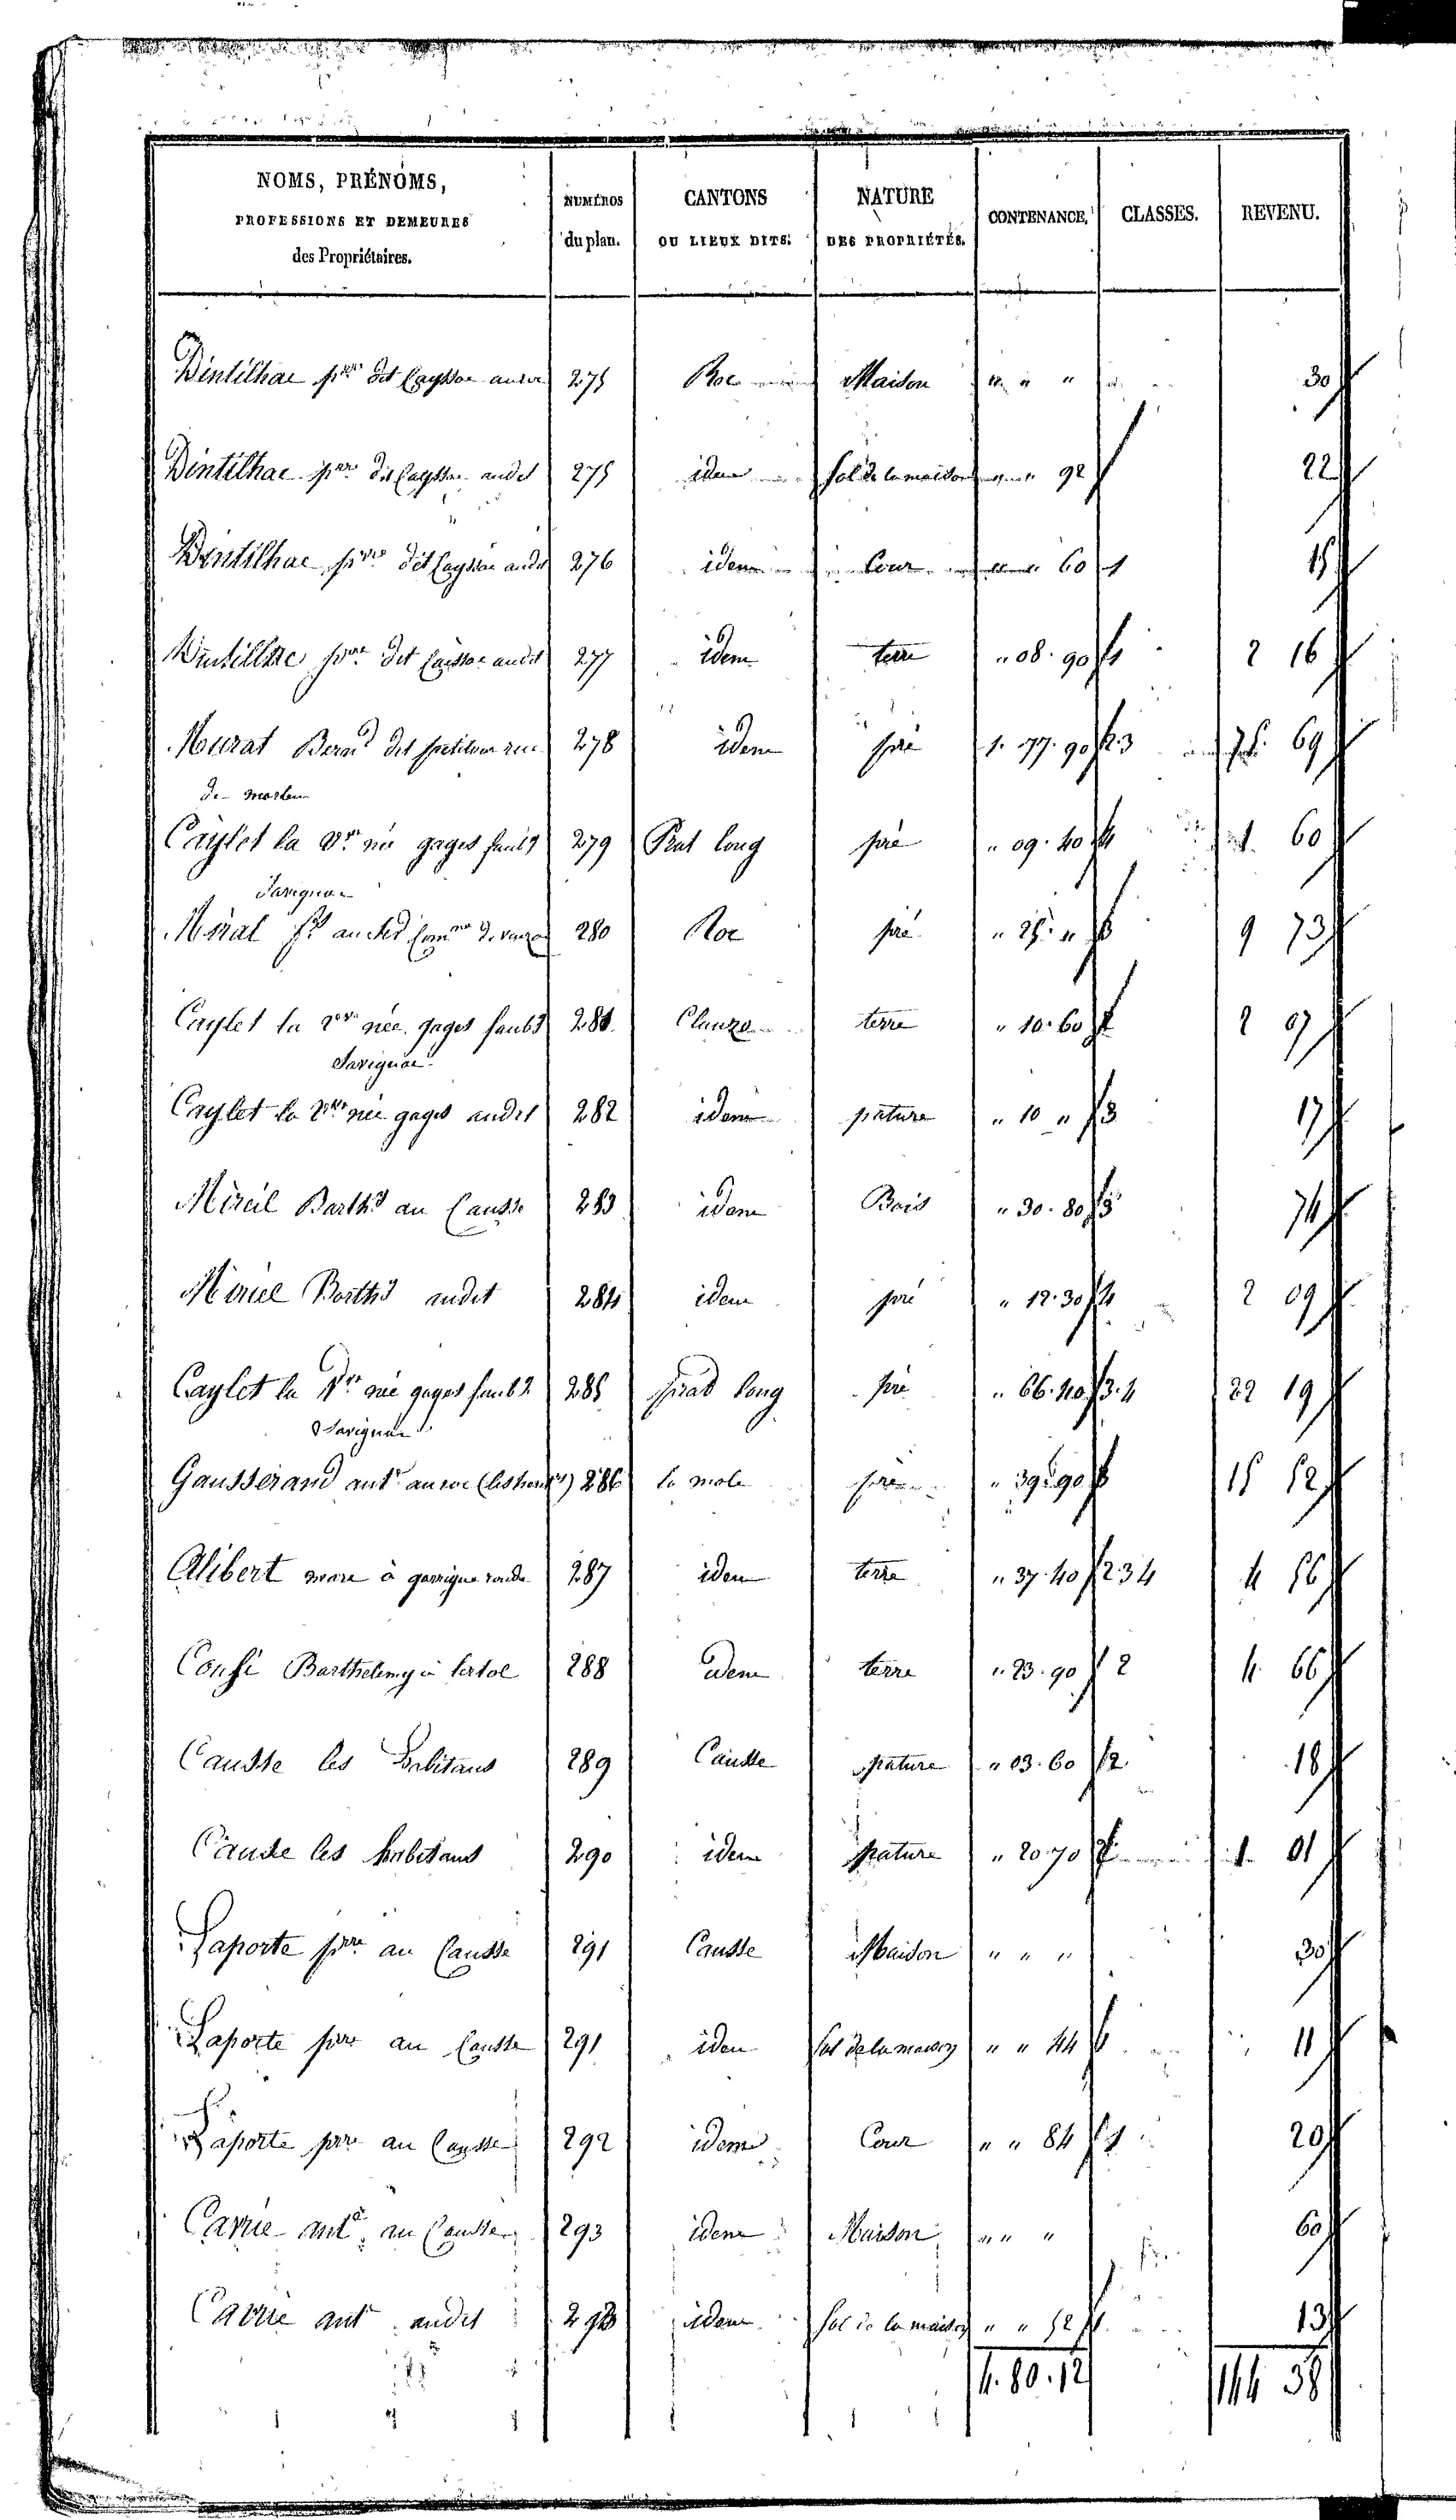 NOMS, PRÉNOMS,
PROFESSIONS ET DEMEURES
des Propriétaires.
NUMÉROS
du plan.
CANTONS
OU LIEUX DITS.
NATURE
DES PROPRIÉTÉS.
CONTENANCE.
CLASSES.
REVENU.
Dintilhac pre dit Cayssac 275 Roc Maison " " " 30
Dintilhac pre dit Cayssac audit 275 idem Sol de la maison " " 92 1 22
Dintilhac pre dit Cayssac audit 276 idem Cour " " 60 1 15
Dintilhac pre dit Caissac audit 277 idem terre " 08. 90 1 2 16
Murat Berard dit 278 idem pré 1. 77. 90 2.3 69
de
Caylet la Vve née gages 279 Prat long pré " 09. 40 4 1. 60
Savignac
Miral au 280 Roc pré " 25. " 3 9 73
Caylet la Vve née gages 281 Clauzo terre " 10. 60 2 07
Savignac
Caylet la Vve née gages audit 282 idem pature " 10 " 3 17
Mireil Barthd au Causse 283 idem Bois " 30. 80 3 74
Miriel Barthd audit 284 idem pré " 12. 30 4 2 09
Caylet la Vve née gages 285 prad long pré " 66. 40 3.4 22 19
Savignac
Gausserand antne au roc 286 la mole pré " 39. 90 3 15 52
Alibert marc à garrigue ronde 287 idem terre " 37. 40 2 3 4 4 56
Barthelemy à 288 idem terre " 23. 90 2 4 66
Causse les habitans 289 Causse pature " 03. 60 2 18
Causse les habitans 290 idem pature " 20. 70 1. 01
Laporte pre au Causse 291 Causse Maison " " " 30
Laporte pre au Causse 291 idem Sol de la maison " " 44 1 11
Laporte pre au Causse 292 idem Cour " " 84 1 20
Carrie ante au Causse 293 idem Maison " " " 60
Carrie ant audit 293 idem Sol de la maison " " 52 1 13
4. 80. 12 144 38